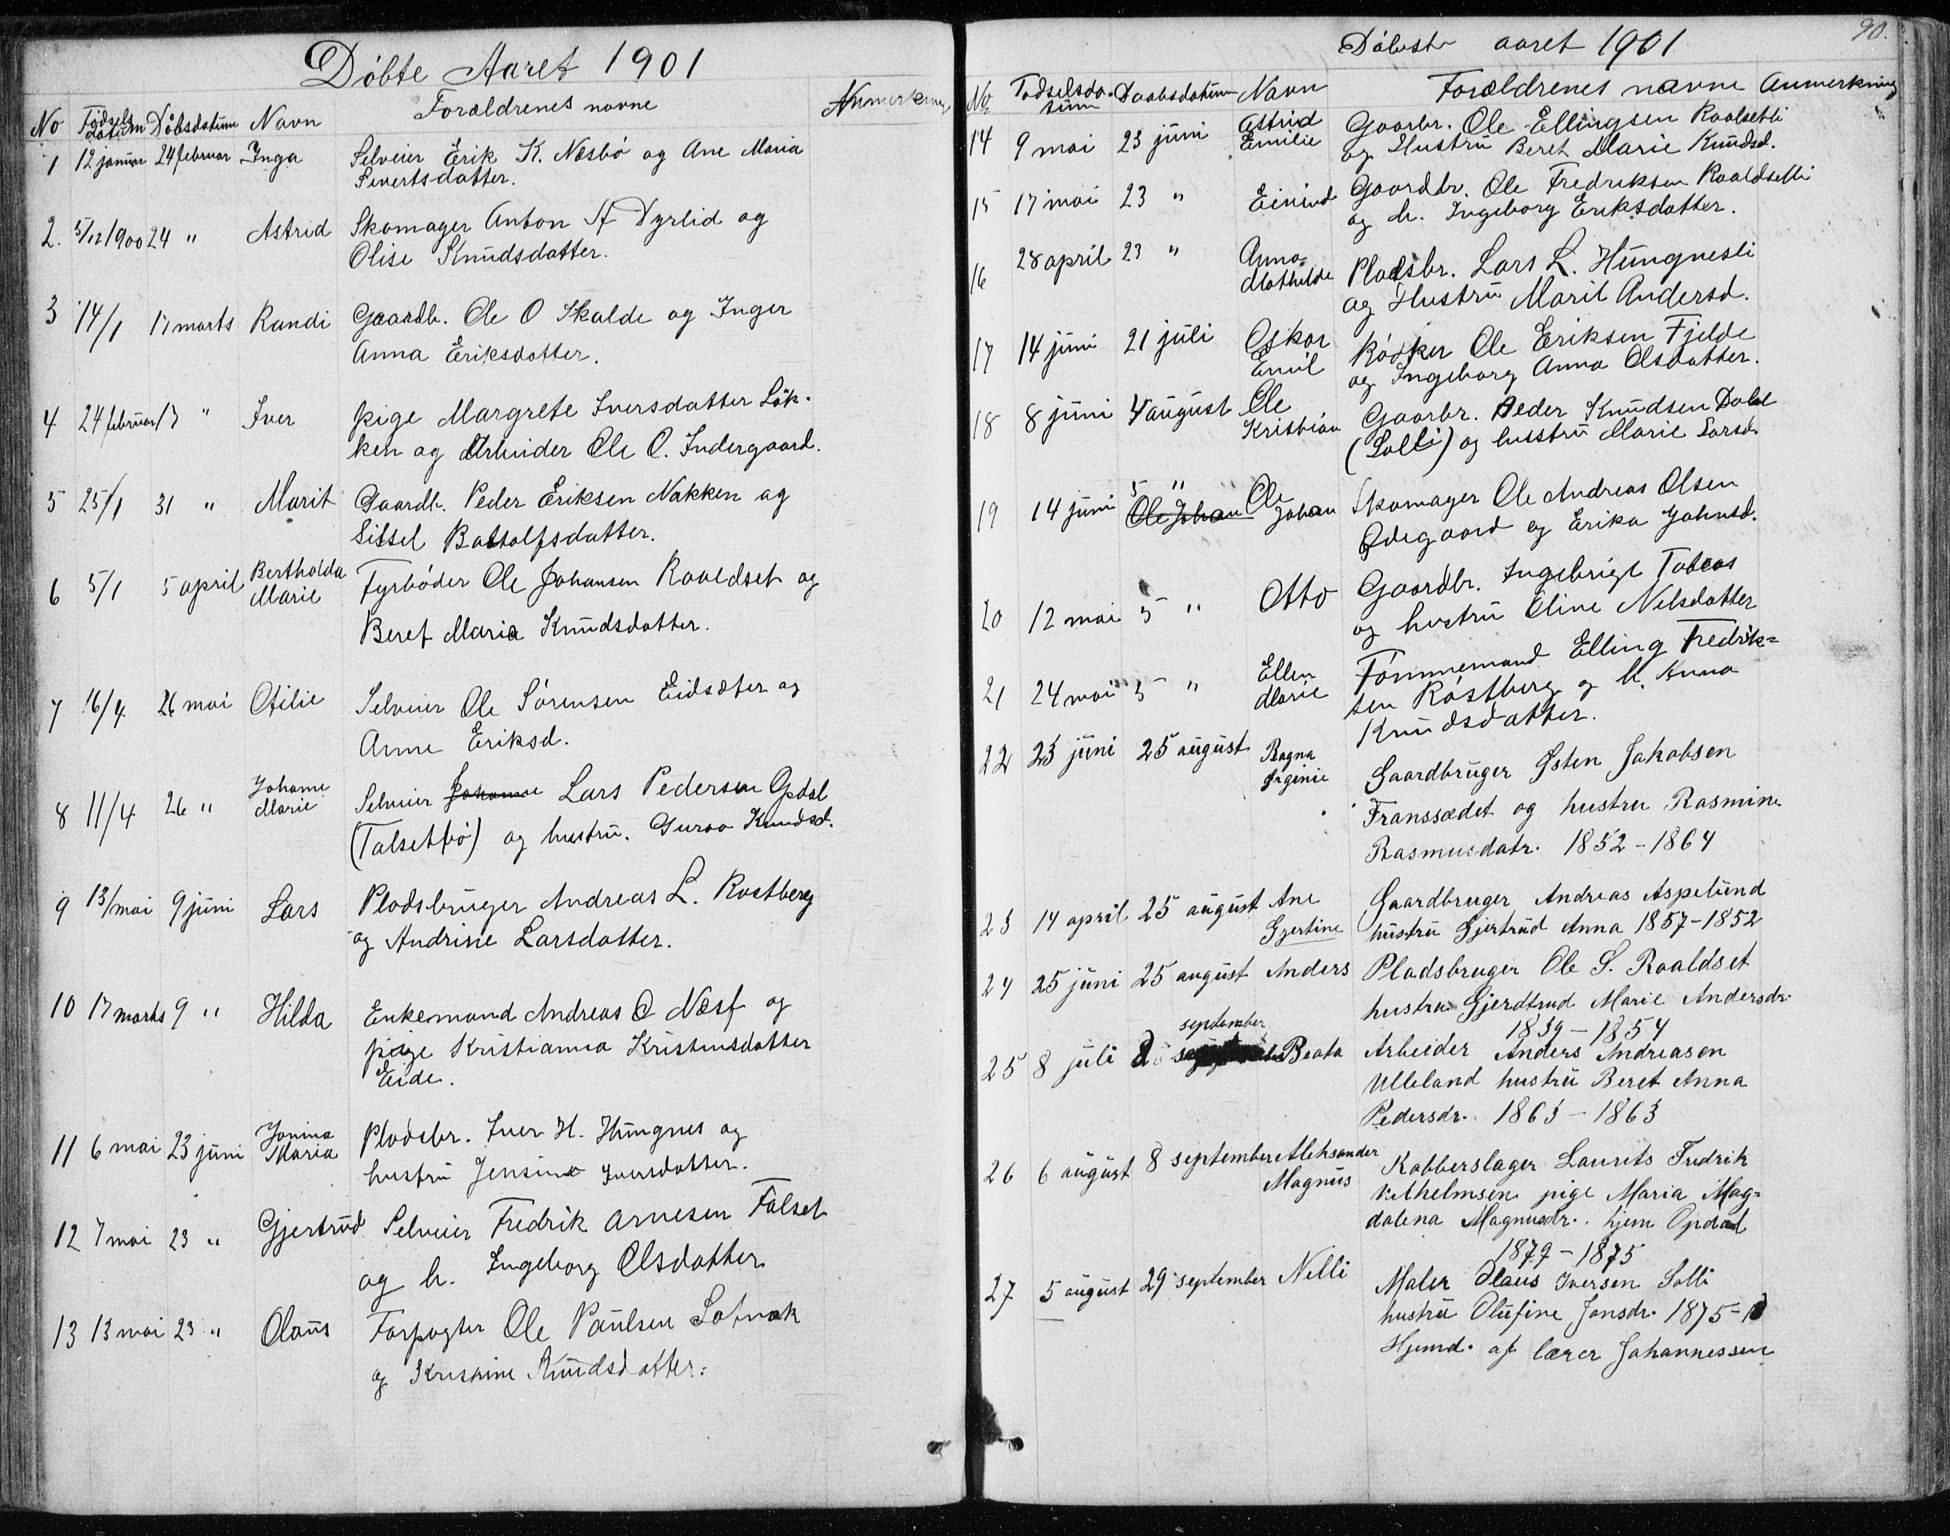 Døbte Aaret 1901
No Fødselsdatum Døbsdatum Navn Forældrenes navne Anmerkning
1 12 januar 24 februar Inga Selveier Erik K. Næsbø og Ane Maria
Sivertsdatter.
2. 5/12 1900 24 " Astrid Skomager Anton A Dyrlid og
Olise Knudsdatter.
3 14/1 17 marts Randi Gaardb. Ole O Skalde og Inger
Anna Eriksdatter.
4 24 februar 17 " Iver pige Margrete Iversdatter Løk-
ken og Arbeider Ole O. Indergaard.
5 25/1 31 " Marit Gaardb. Peder Eriksen Nakken og
Sissel Battolfsdatter.
6 5/1 5 april Berthalda
Marie Fyrbøder Ole Johansen Raaldset og
Beret Maria Knudsdatter.
7 16/4 26 mai Otilie Selveier Ole Sørensen Eidsæter og
Anne Eriksd.
8 11/4 26 " Johanne
Marie Selveier Johanne Lars Pedersen Opdal
(Talsetbø) og hustru. Guroo Knudsd.
9 13/mai 9 juni Lars Pladsbruger Andreas L. Røstberg
og Andrine Larsdatter.
10 17 marts 9 " Hilda Enkemand Andreas O Næsf og
pige Kristianna Kristensdatter
Eide.
11 6 mai 23 juni Jonina
Maria Pladsbr. Iver H. Hungnes og
hustru Jensine Iversdatter.
12 7 mai 23 " Gjertrud Selveier Fredrik Arnesen Falset
og h. Ingeborg Olsdatter
13 13 mai 23 " Olaus Forpagter Ole Paulsen
og Kristine Knudsdatter.
90.
Døbest aaret 1901
No Fødselsdatum Daabsdatum Navn Forældrenes navne Anmerkning
14 9 mai 23 juni Astrid
Emilie Gaarbr. Ole Ellingsen Raalsetli
og Hustru Beret Marie Knudsd.
15 17 mai 23 " Gaardbr. Ole Fredriksen Raaldsetli
og h. Ingeborg Eriksdatter.
16 28 april 23 " Anna
Mathilde Pladsbr. Lars L. Hungnesli
og Hustru Marit Andersd.
17 14 juni 21 juli Oskar
Emil Røsker Ole Eriksen Fjelde
og Ingeborg Anna Olsdatter.
18 8 juni 4 august Ole
Kristian Gaarbr. Peder Knudsen Dale
(Solli) og hustru Marie Larsd.
19 14 juni 5 " Ole Johan Ole
Johan Skomager Ole Andreas Olsen
Ødegaard og Erika Johnsd.
20 12 mai 5 " Otto Gaardbr. Ingebrigt Tobeas
og hustru Eline Nilsdatter
21 24 mai 5 " Ellen
Marie Tømmermand Elling Fredrik=
sen Røstberg og h. Anna
Knudsdatter.
22 23 juni 25 august Ragna
Irginie Gaardbruger Østen Jakobsen
Franssædet og hustru Rasmine
Rasmusdatr. 1852 - 1864
23 14 april 25 august Ane
Gjertine Gaardbruger Andreas Aspelund
hustru Gjertrud Anna 1857-1852
24 25 juni 25 august Anders Pladsbruger Ole S. Raaldset
hustru Gjerdtrud Marie Andersdr.
1839 - 1854
25 8 juli 8 september Beata Arbeider Anders Andreasen
Ulleland hustru Beret Anna
Pedersdr. 1863 - 1863
26 6 august 8 september Aleksander
Magnus Kobberslager Laurits Fredrik
Vilhelmsen pige Maria Mag=
dalena Magnusdr. hjem Opdal
1879 - 1875
27 5 august 29 september Nelli Maler Olaus Iversen Solli
hustru Olufine Jonsdr. 1875-
Hjemd. af lærer Johannessen